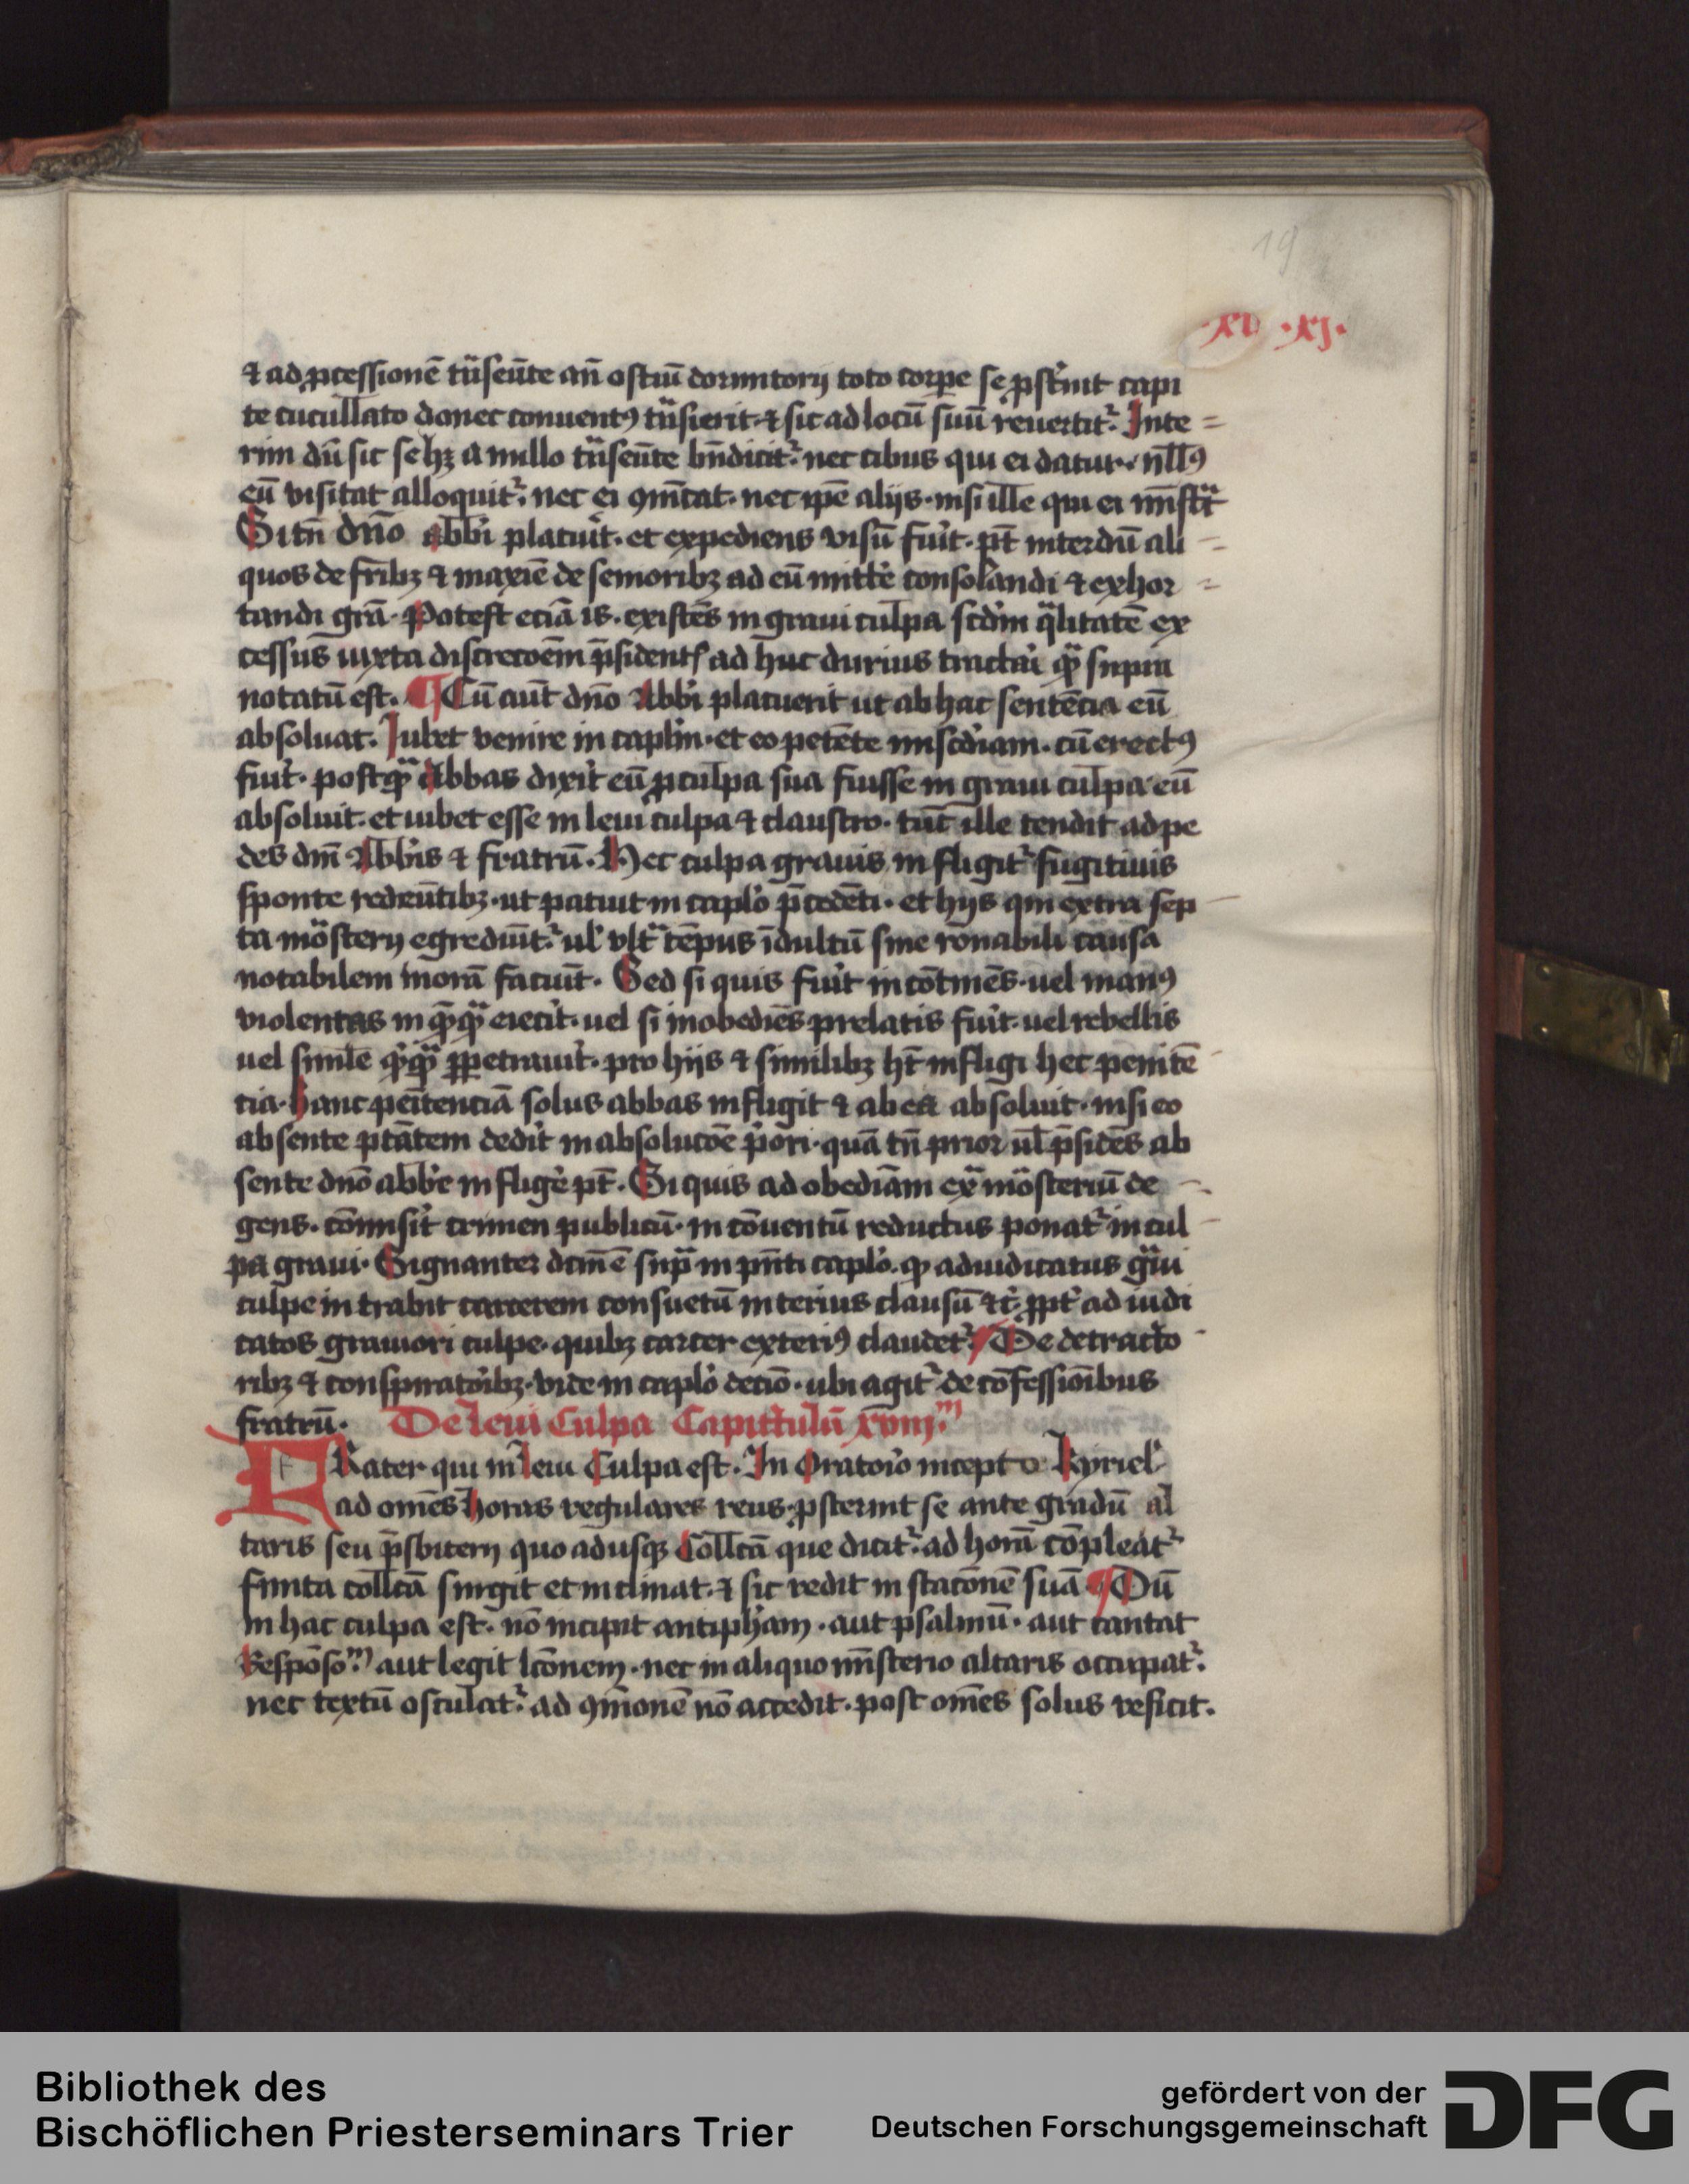 19
·xv ·xj·
⁊ ad ꝓcessionē tͣseūte an̄ ostiū dormitorij toto corꝑe se ꝓst̾nit capi
te cucullato donec conuentꝯ tͣnsierit ⁊ sic ad locū suū reuertit᷑. Inte =
rim dū sic se hꝫ a nullo tͣnseūte bn̄dicit᷑. nec cibus qui ei datur. nllꝯ
eū visitat alloquit᷑. nec ei ꝯmīcat. nec ip̄e alijs. nisi ille qui ei mīstͣt
Si tn̄ dn̄o abbi placuit. et expediens visū fu̾it. pt̄ interdū ali -
quos de fr̄ibꝫ ⁊ maxīe de senioribꝫ ad eū mitte̾ consolandi ⁊ exhor =
tandi gr̄a. Potest eciā is. existēs in graui culpa scd̾m qͣlitatē ex
cessus iuxta discrecōem p̄sidentꝭ ad huc durius tracta̾i qͣ supra
notatū est. ¶ Cū aut̄ dn̄o Abbi placuerit ut ab hac sentēcia eū
absoluat. Iubet venire in capl̾m. et eo petēte mīscd̾iam. cū erectꝯ
fu̾it. postqͣ Abbas dixit eū ꝓ culpa sua fuisse in graui culpa eū
absoluit. et iubet esse in leui culpa ⁊ claustro. tūc ille tendit ad pe
des dn̄i Abb̾is ⁊ fratrū. Hec culpa grauis infligit᷑ fugitiuis
sponte redeūtibꝫ. ut patuit in caplo̾ p̄cedēti. et hijs qui extra sep -
ta mōsterij egrediūt᷑. ul̾ vltͣ tēpus īdultū sine rōnabili causa
notabilem morā faciūt. Sed si quis fu̾it incōtinēs. uel manꝯ
violentas in qͣqͣ eiecit. uel si inobediēs prelatis fu̾it. uel rebellis
uel simile qͥqͣ ꝑpetrauit. pro hijs ⁊ similibꝫ ht̄ infligi hec penitē
cia. Hanc peītenciā solus abbas infligit ⁊ ab ea absoluit. nisi eo
absente ptātem dedit in absolucōe p̾ori. quā tn̄ prior ul̄ p̄sidēs ab
sente dn̄o abb̾e inflige̾ pt̄. Si quis ad obediām exͣ mōsteriū de -
gens. cōmisit crimen publicū. in cōuentū reductus ponat᷑ in cul -
pa graui. Signanter dcm̄ ē supͣ in pn̄ti caplo̾. ꝙ adiudicatus gͣui
culpe intrabit carcerem consuetū interius clausū ⁊c̾. ꝓpt̾ adiudi
catos grauiori culpe. quibꝫ carcer exteriꝯ claudet᷑. De detracto -
ribꝫ ⁊ conspirato̾ibꝫ. vide in caplo̾ decio̾. ubi agit᷑ de cōfessiōibus
fratrū. De leui Culpa Capittulū xviijᵐ
FRater qui in leui Culpa est. In Orato̾io incepto Kyriel̾
ad omēs horas regulares reus. ꝓsternit se ante gradū al
taris seu p̄sbiterij quo adusqꝫ Collcā que dicit᷑. ad horā cōpleat᷑
finita collcā surgit et inclinat. ⁊ sic redit in stacōnē suā ¶ Dū
in hac culpa est. nō incipit antiph̾am. aut psalmū. aut cantat
Respōsoᵐ) aut legit lcōnem. nec in aliquo mīsterio altaris occupat᷑.
nec textū osculat᷑. ad ꝯmīonē nō accedit. post omēs solus reficit.
Bibliothek des
Bischöflichen Priesterseminars Trier
gefördert von der
Deutschen Forschungsgemeinschaft
DFG